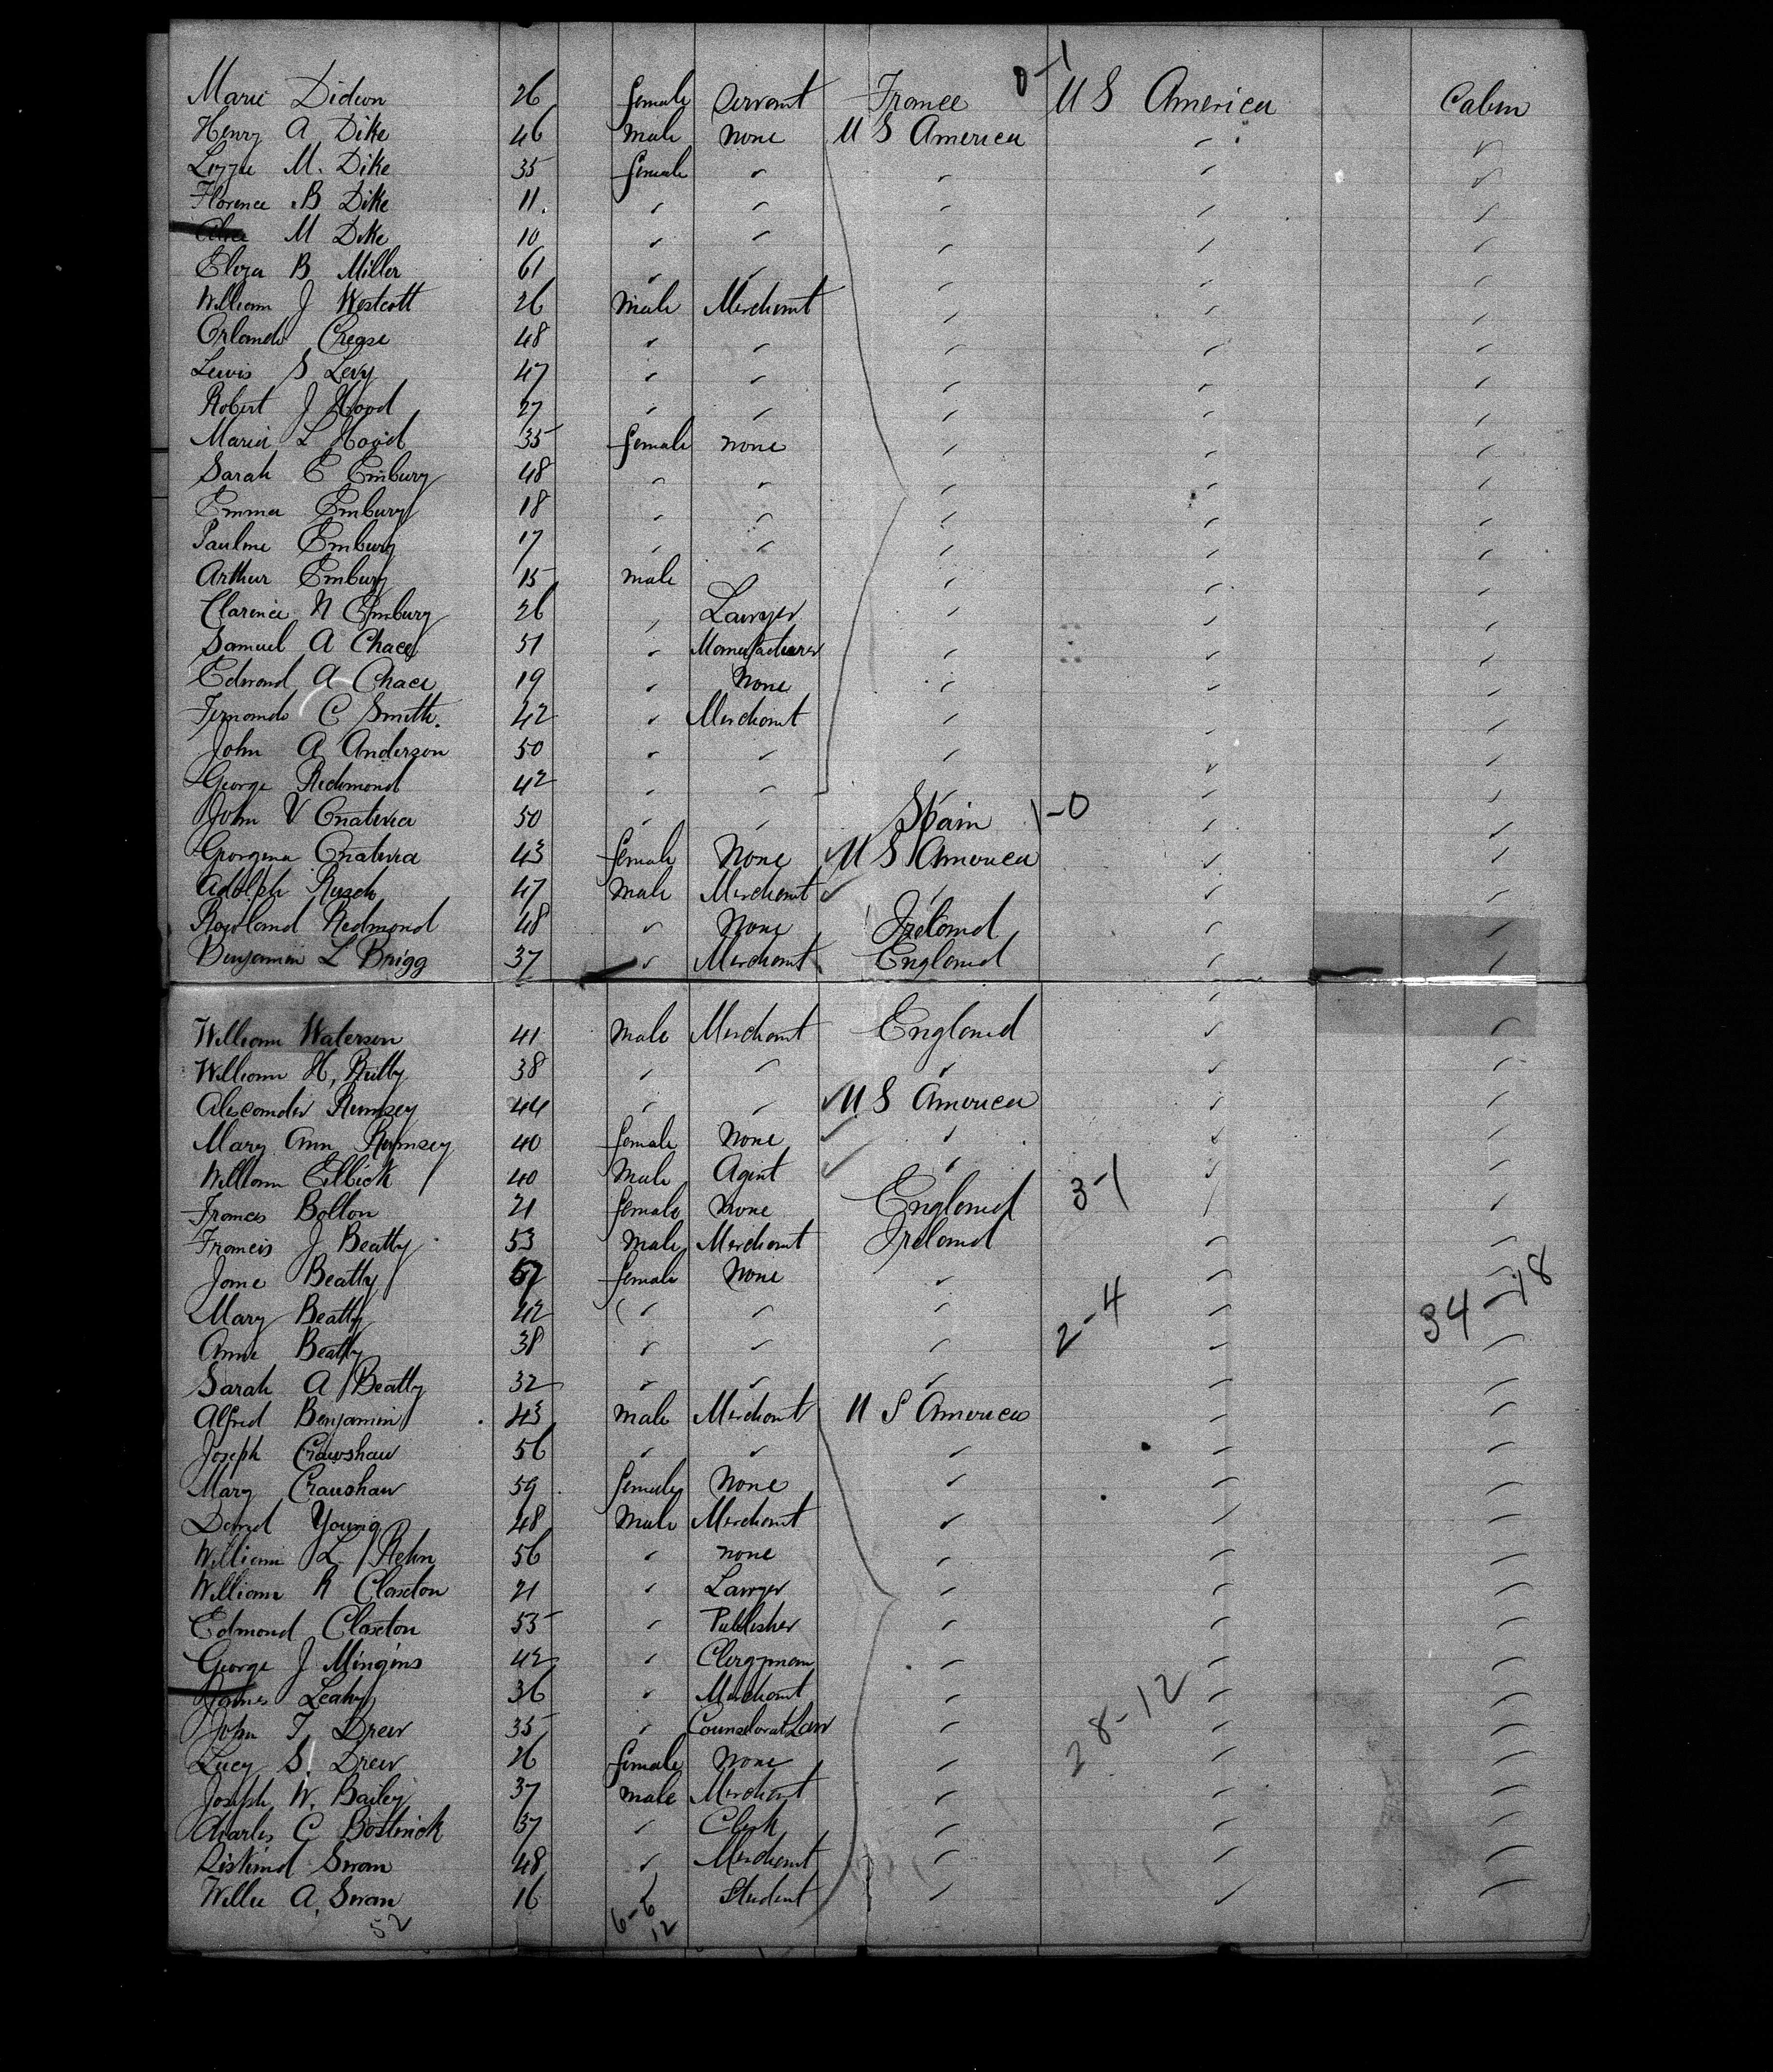 Marie Didion 26 female Servant France 0-1 U S America Cabin
Henry A Dike 46 male none U S America " "
Lizzie M. Dike 35 female " " " "
Florence B Dike 11. " " " " "
Alice M Dike 10 " " " " "
Eliza B Miller 61 " " " " "
William J Westcott 26 Male Merchant " " "
Orlando Crease 48 " " " " "
Lewis S Levy 47 " " " " "
Robert J Hood 27 " " " " "
Maria L Hood 35 female none " " "
Sarah E Embury 48 " " " " "
Emma Embury 18 " " " " "
Pauline Embury 17 " " " " "
Arthur Embury 15 male " " "
Clarence N Embury 26 " Lawyer " " "
Samuel A Chace 51 " Manufacturer " " "
Edward A Chace 19 " None " " "
Fernando C Smith. 42 " Merchant " " "
John A Anderson 50 " " " " "
George Redmond 42 " " " " "
John V 50 " " Spain 1-0 " "
Georgina 43 female None U S America " "
Adolph Rusch 47 Male Merchant " " "
Rowland Redmond 48 " None Ireland " "
Benjamin L Brigg 37 " Merchant England " "
William Waterson 41 male Merchant England " "
William H, 38 " " " " "
Alexander Rumsey 44 " " U S America " "
Mary Ann Rumsey 40 female None " " "
William 40 Male Agent " " "
Frances Bolton 21 female None England 3-1 " "
Francis J Beatty 53 Male Merchant Ireland " "
Jane Beatty 57 female None " " "
Mary Beatty 42 " " " 2-4 " 34-18
Anne Beatty 38 " " " " "
Sarah A Beatty 32 " " " " "
Alfred Benjamin 43 Male Merchant U S America " "
Joseph Crawshaw 56 " " " " "
Mary Crawshaw 59 female None " " "
David Young 48 Male Merchant " " "
William L. Rehn 56 " none " " "
William R Claxton 21 " Lawyer " " "
Edmond Claxton 53 " Publisher " " "
George J Mingins 42 " Clergyman " " "
James Leahy 36 " Merchant " " "
John T, Drew 35 " Counselor at Law " 28-12 " "
Lucy S. Drew 26 female None " " "
Joseph W. Bailey 37 male Merchant " " "
Charles C Bostwick 37 " Clerk " " "
Swan 48 " Merchant " " "
Willie A, Swan 16 " Student " " "
52 6-6
12